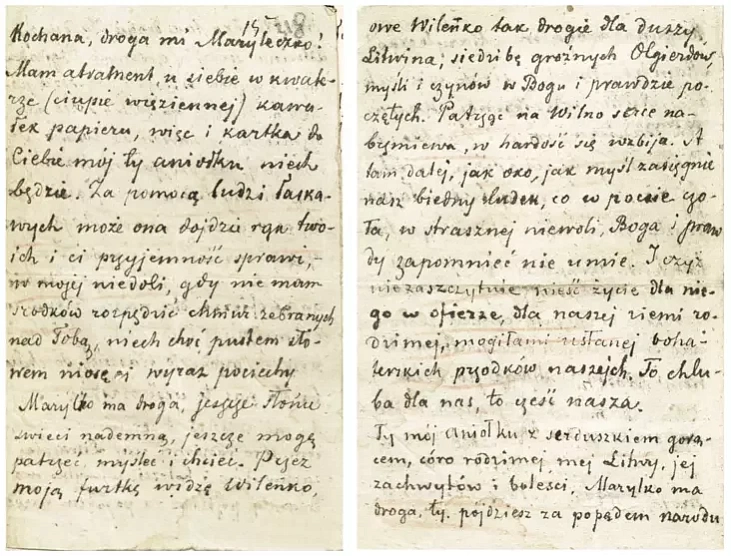 218
Kochana, droga mi Maryleczko!
Mam atrament u siebie w kwate-
rze (ciupie więziennej) kawa-
łek papieru, więc i kartka do
Ciebie mój ty aniołku niech
będzie. Za pomocą ludzi łaska-
wych może ona dojdzie rąk two-
ich i ci przyjemność sprawi,
w mojej niedoli, gdy nie mam
środków rozpędzić chmur zebranych
nad Tobą, niech choć pustem sło-
wem niosę ci wyraz pociechy
Marylko ma droga, jeszcze słońce
świeci nademną, jeszcze mogę
patrzeć, myśleć i chcieć. Przez
moją furtkę widzę Wileńko,
owe Wileńko tak drogie dla duszy
Litwina, siedzibę groźnych Olgierdów,
myśli i czynów w Bogu i prawdzie po-
czętych. Patrząc na Wilno serce na-
brzmiewa, w hardość się wzbija. A
tam dalej, jak oko, jak myśl zasięgnie
nasz biedny ludek, co w pocie czo-
ła, w strasznej niewoli, Boga i praw
dy zapomnieć nie umie. I czyż
niezaszczytnie nieść życie dla nie-
go w ofierze, dla naszej ziemi ro-
dzimej, mogiłami usłanej boha-
terskich przodków naszych. To chlu-
ba dla nas, to cześć nasza.
Ty mój aniołku z serduszkiem gorą-
cem, córo rodzimej mej Litwy, jej
zachwytów i boleści, Marylko ma
droga, ty pójdziesz za popędem narodu